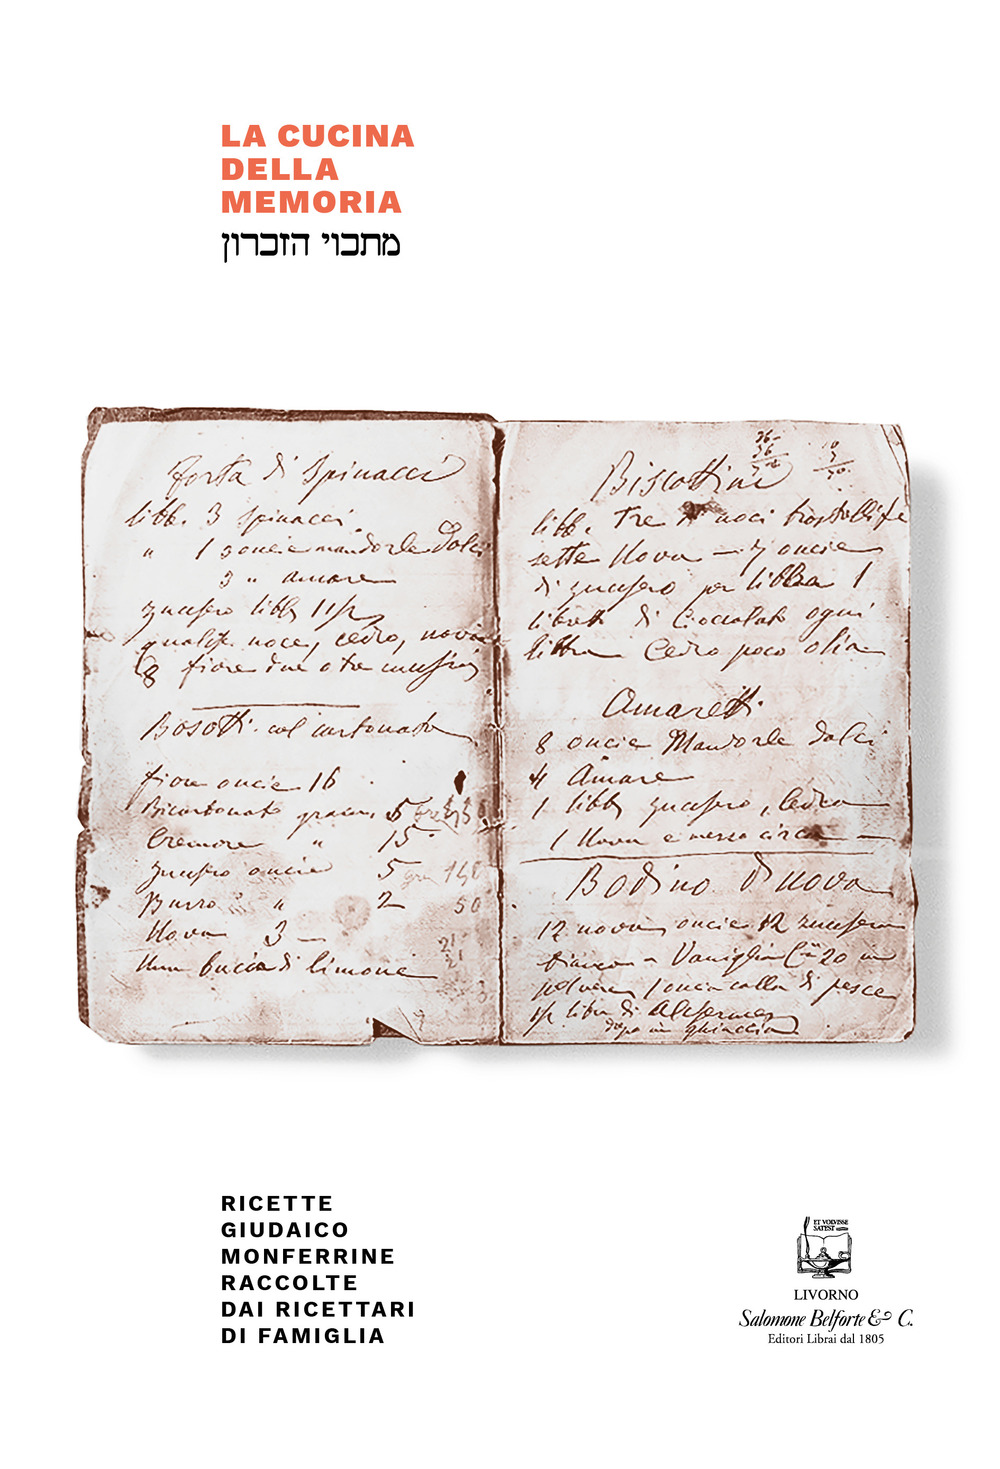 LA CUCINA
DELLA
MEMORIA
מתכוני הזכרון
Torta di Spinacci
libb. 3 Spinacci
" 1 3 oncie mandorle dolci
3 " amare
zucchero libb 1 1/2
noce, cedro, nova
8 fiore due o tre
Bosotti col
fiore oncie 16
Bicarbonato 5
Cremore " 15
zucchero oncie 5
Burro " 2 50
Nova 3
Una buccia di limone
Biscottini
libb. Tre noci
sette Nova - 7 oncie
di zucchero per libbra 1
di Cioccolato ogni
libbra Cedro poco olio
Amaretti
8 oncie Mandorle dolci
4 Amare
1 libb zucchero, Cedro
1 Nova e mezzo circa
Bodino d'nova
12 nova, oncie 12 zucchero
bianco Vaniglia 20 in
polvere, 1 oncia colla di pesce
1/2 libra di Alchermes
dopo in ghiaccio
RICETTE
GIUDAICO
MONFERRINE
RACCOLTE
DAI RICETTARI
DI FAMIGLIA
ET VOLVISSE
SATEST
LIVORNO
Salomone Belforte & C.
Editori Librai dal 1805